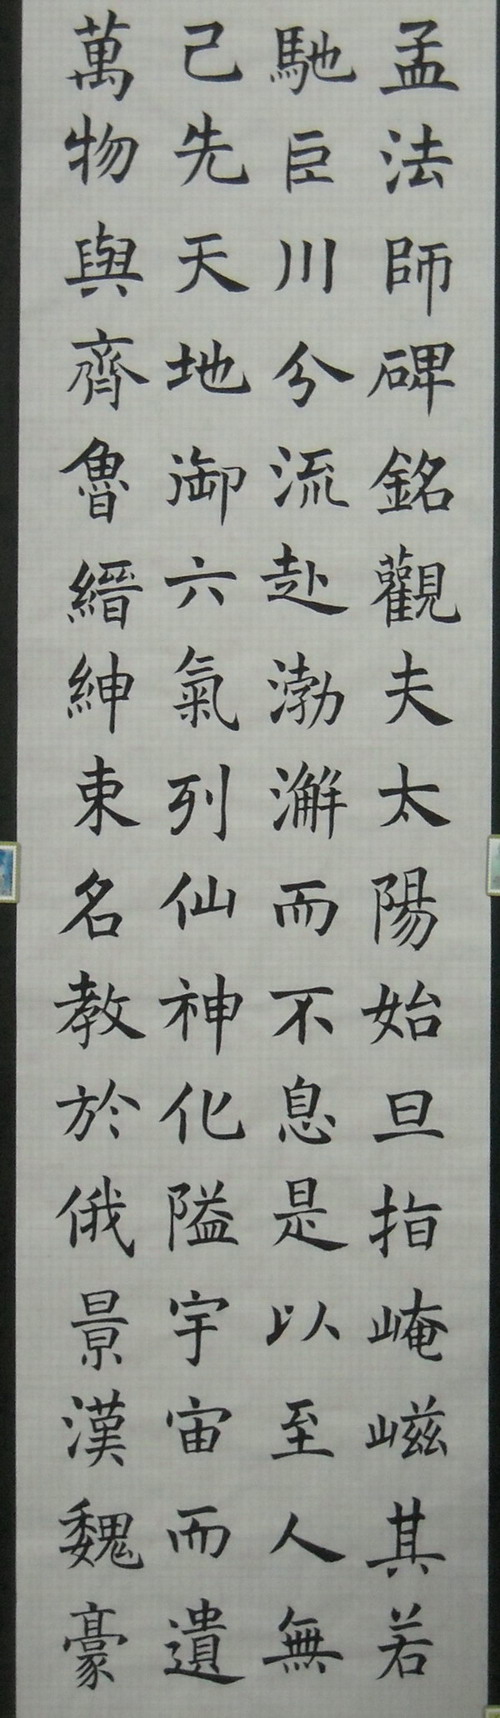 孟法師碑銘觀夫太陽始旦指崦嵫其若
馳巨川分流赴渤澥而不息是以至人無
己先天地御六氣列仙神化隘宇宙而遺
萬物與齊魯縉紳束名教於俄景漢魏豪